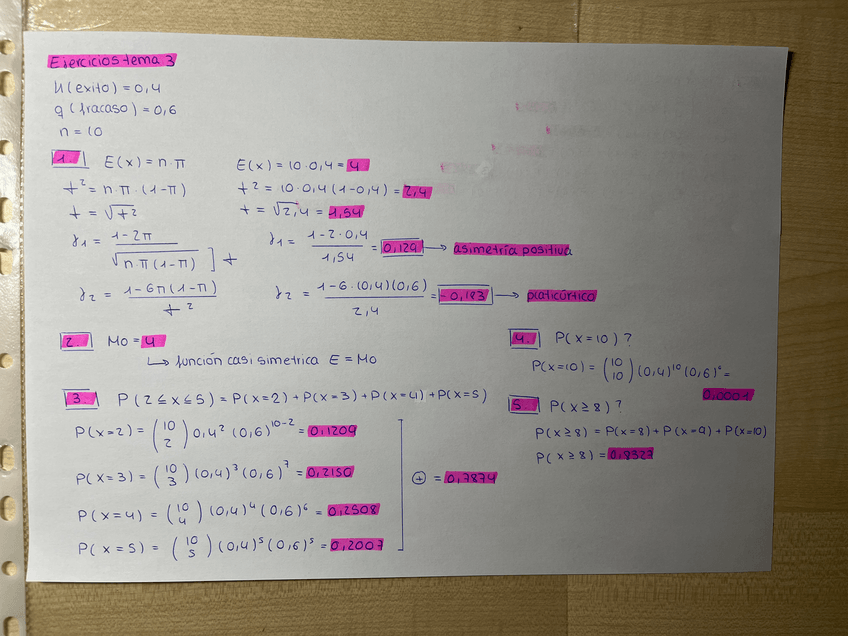 Ejercicios tema 3
π(exito) = 0,4
q(fracaso) = 0,6
n = 10
1. E(x) = n·π E(x) = 10·0,4 = 4
σ² = n·π·(1-π) σ² = 10·0,4(1-0,4) = 2,4
σ = √σ² σ = √2,4 = 1,54
γ₁ = (1-2π) / √(n·π(1-π)) ] σ γ₁ = (1-2·0,4) / 1,54 = 0,129 → asimetría positiva
γ₂ = (1-6π(1-π)) / σ² γ₂ = (1-6·(0,4)(0,6)) / 2,4 = -0,183 → platicúrtico
2. Mo = 4
↳ función casi simetrica E = Mo
3. P(2≤x≤5) = P(x=2) + P(x=3) + P(x=4) + P(x=5)
P(x=2) = (10 2) 0,4² (0,6)¹⁰⁻² = 0,1209
P(x=3) = (10 3) (0,4)³ (0,6)⁷ = 0,2150
P(x=4) = (10 4) (0,4)⁴ (0,6)⁶ = 0,2508
P(x=5) = (10 5) (0,4)⁵ (0,6)⁵ = 0,2007
⊕ = 0,7874
4. P(x=10)?
P(x=10) = (10 10) (0,4)¹⁰ (0,6)° =
0,0001
5. P(x≥8)?
P(x≥8) = P(x=8) + P(x=9) + P(x=10)
P(x≥8) = 0,8327